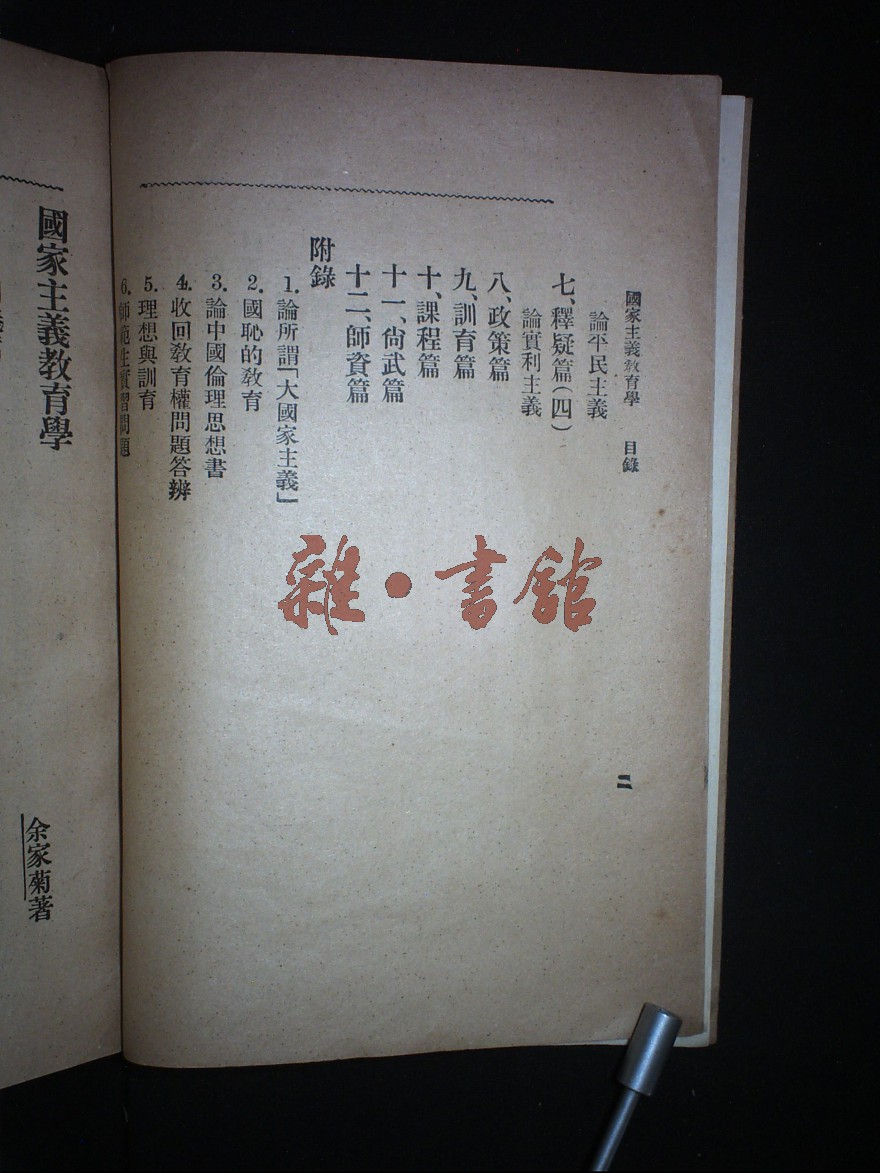 國家主義教育學　目錄
二
論平民主義
七、釋疑篇(四)
論實利主義
八、政策篇
九、訓育篇
十、課程篇
十一、尙武篇
十二、師資篇
附錄
1.論所謂「大國家主義」
2.國恥的敎育
3.論中國倫理思想書
4.收回敎育權問題答辨
5.理想與訓育
6.師範生實習問題
國家主義教育學
余家菊著
雜·書館